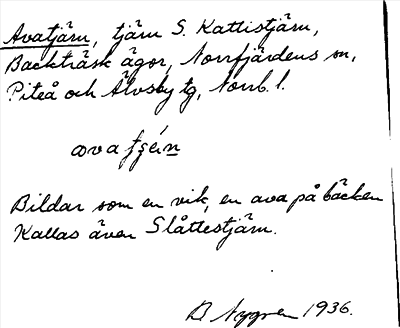 Avatjärn, tjärn S. Kattistjärn,
Backträsk ägor, Norrfjärdens sn,
Piteå och Älvsby tg, Norrb. l.
Bildar som en vik, en ava på bäcken
Kallas även Slåttestjärn.
B Nygren 1936.